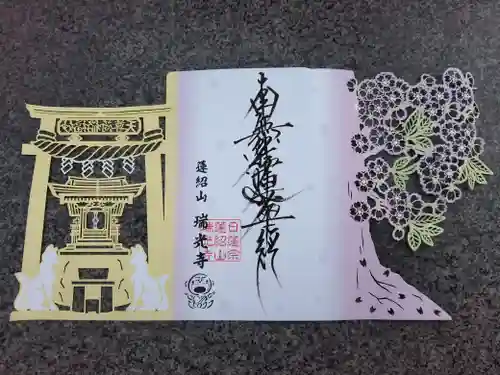 南無妙法蓮華経
蓮紹山 瑞光寺
日蓮宗
蓮紹山
瑞光寺